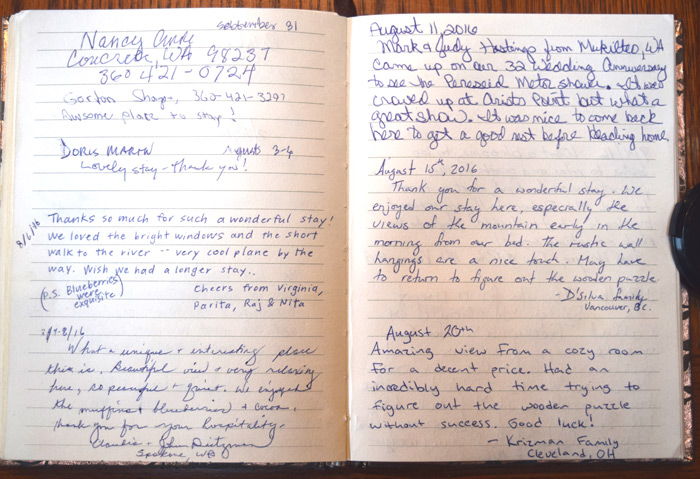 September 31
Nancy
Concrete, WA 98237
360 421-0724
Gordon Sharpe, 360-421-3297
Awsome place to stay!
Doris Martin August 3-6
Lovely stay - Thank you!
8/6/16
Thanks so much for such a wonderful stay!
We loved the bright windows and the short
walk to the river -- very cool plane by the
way. Wish we had a longer stay..
(P.S. Blueberries
were
exquisite)
Cheers from Virginia,
Parita, Raj & Nita
8/16
What a unique + interesting place
this is. Beautiful view + very relaxing
here, so peaceful + quiet. We enjoyed
the muffins + blueberries + cocoa.
Thank you for your hospitality.
Claudia +
Spokane, WA
August 11, 2016
Mark & Judy Hastings from Mukilteo, WA
came up on our 32 wedding anniversary
to see the Pereseid Metor shower. It was
crowed up at Artists Point but what a
great show. It was nice to come back
here to get a good rest before heading home.
August 15th, 2016
Thank you for a wonderful stay. We
enjoyed our stay here, especially the
views of the mountain early in the
morning from our bed. The rustic wall
hangings are a nice touch. May have
to return to figure out the wooden puzzle
- D'Silva family
Vancouver, BC.
August 20th
Amazing view from a cozy room
for a decent price. Had an
incredibly hard time trying to
figure out the wooden puzzle
without success. Good luck!
- Krizman Family
Cleveland, OH